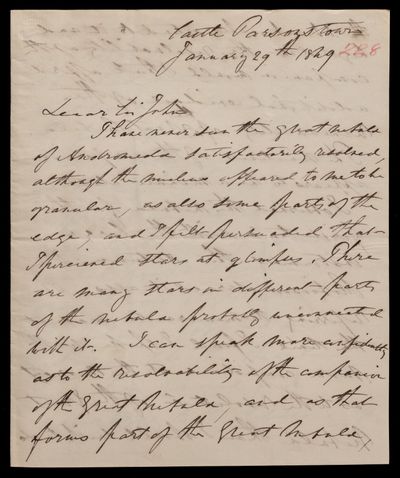 Castle Parsonstown
January 29th 1849 228
Dear Sir John
I have never seen the great nebula
of Andromeda satisfactorily resolved,
although the nucleus appeared to me to be
granular, as also some parts of the
edge, and I felt persuaded that
I perceived stars at glimpses. There
are many stars in different parts
of the nebula probably unconnected
with it. I can speak more confidently
as to the resolvability of the companion
of the Great Nebula, and as that
forms part of the Great Nebula,